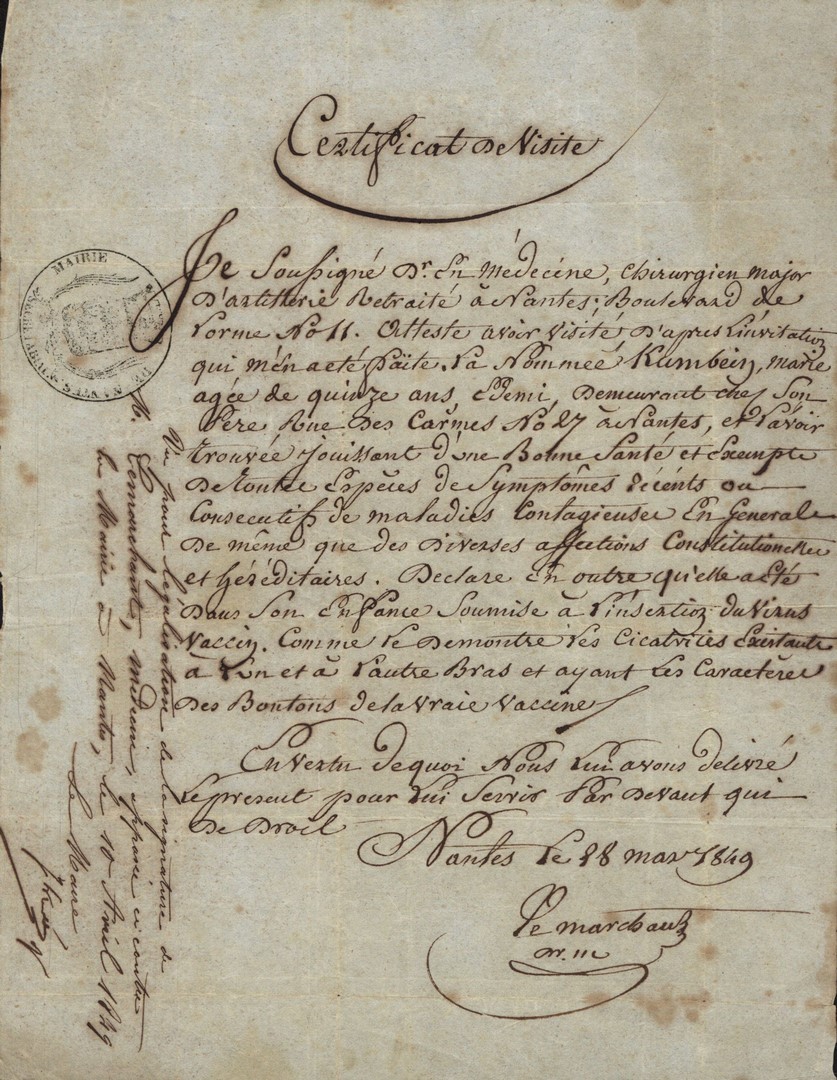 Certificat De Visite
Je Soussigné Dr. En Médecéne, chirurgien major
D'artillerie Retraité à Nantes; Boulevard de
Lorme No 11. Atteste avoir visité D'apres L'invitation
qui m'en a été faite. La Nommeé Kumbein, marie
agée de quinze ans, & Demi, Demeurant chez Son
Père Rue Des Carmes No 27 à Nantes, et L'avoir
trouvée Jouissant d'une Bonne Santé et Exempte
De toutes Espèces de Symptômes récents ou
Consecutifs de maladies Contagieuses En General
De même que des Diverses affections Constitutionelles
et héréditaires. Déclare En outre qu'elle a été
Dans Son Enfance Soumise à L'insertion du Virus
Vaccin. Comme Le Demontre Les Cicatrices Existante
à L'un et à L'autre Bras et ayant Les Caractères
Des Boutons de la Vraie Vaccine
En Vertu de quoi Nous Lui avons délivré
Le présent pour Lui Servir Par Devant qui
De Droit
Nantes Le 28 mars 1849
Le marchand
Dr. m
MAIRIE
DE NANTES
Vu pour légalisation de la signature de
M. Lemarchand, médecin, apposée ci contre
la Mairie à Nantes, le 10 Avril 1849
Le Maire